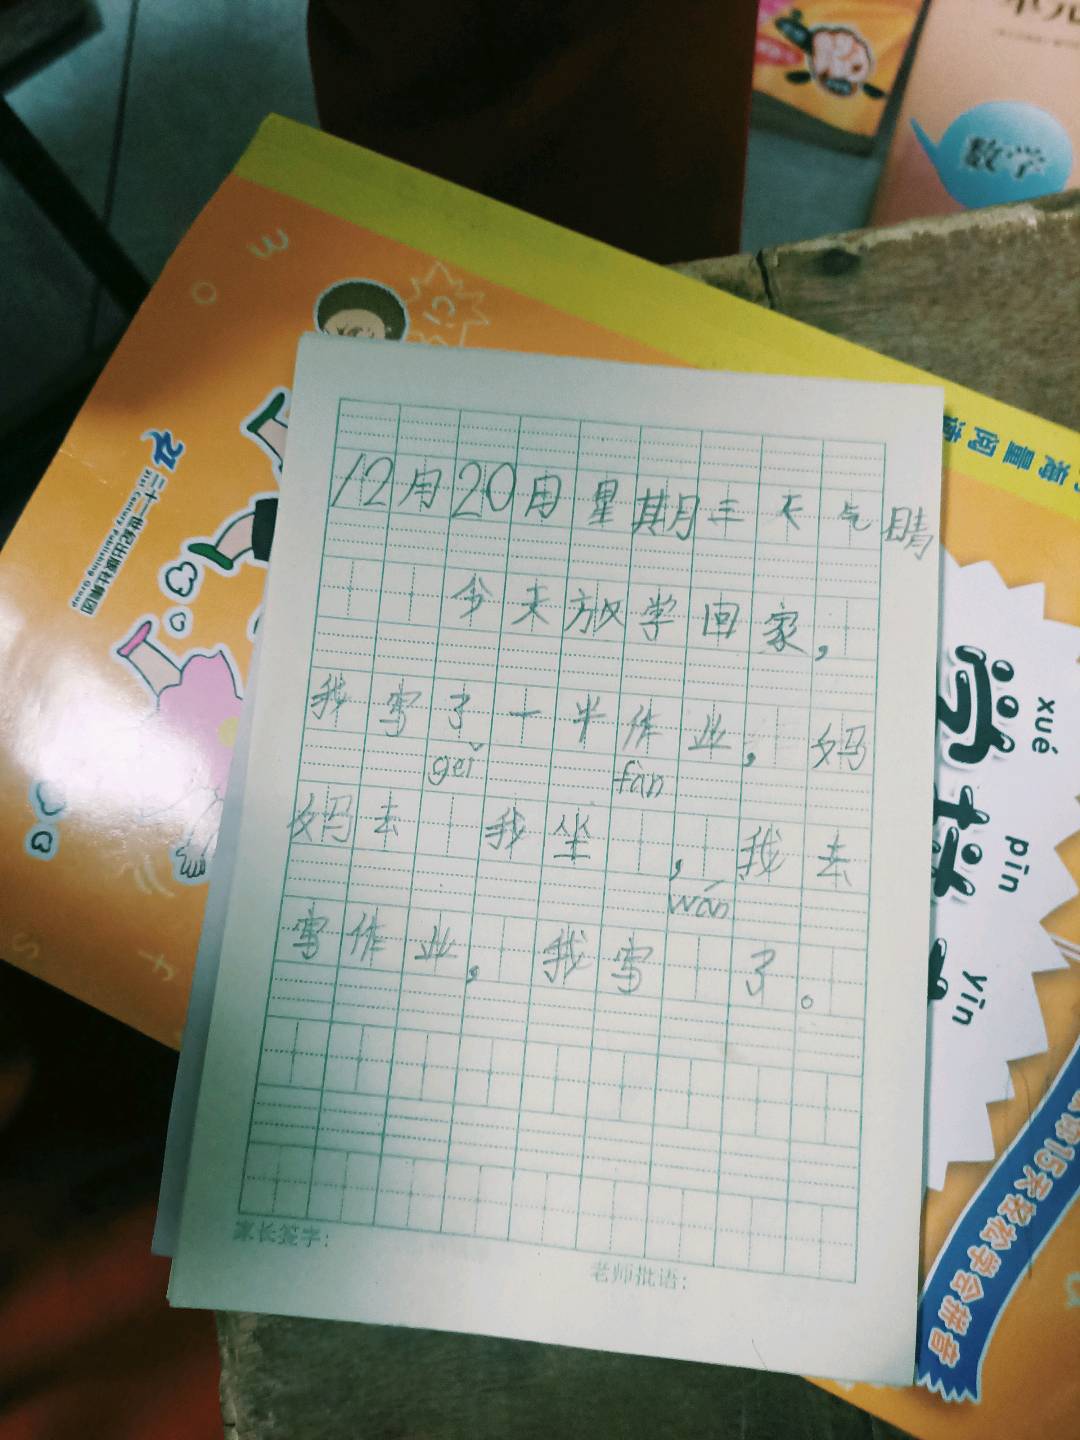 数学
二十一世纪出版社集团
21st Century Publishing Group
12月20日星期三天气晴
今天放学回家，
我写了一半作业，妈
gěi fàn
妈去 我坐 ，我去
wán
写作业，我写 了。
家长签字：
老师批语：
海量阅读
xué pīn yīn
学拼
15天轻松学会拼音